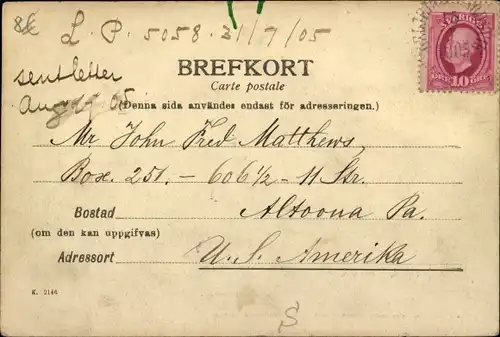 L. P. 5058. 31/7/05
sent letter
Aug 05
BREFKORT
Carte postale
(Denna sida användes endast för adresseringen.)
SVERIGE
10
Mr John Fred Matthews,
Box. 251. – 606 1/2 – 11 Str.
Bostad Altoona Pa.
(om den kan uppgifvas)
Adressort U.S. Amerika
K. 2146
S